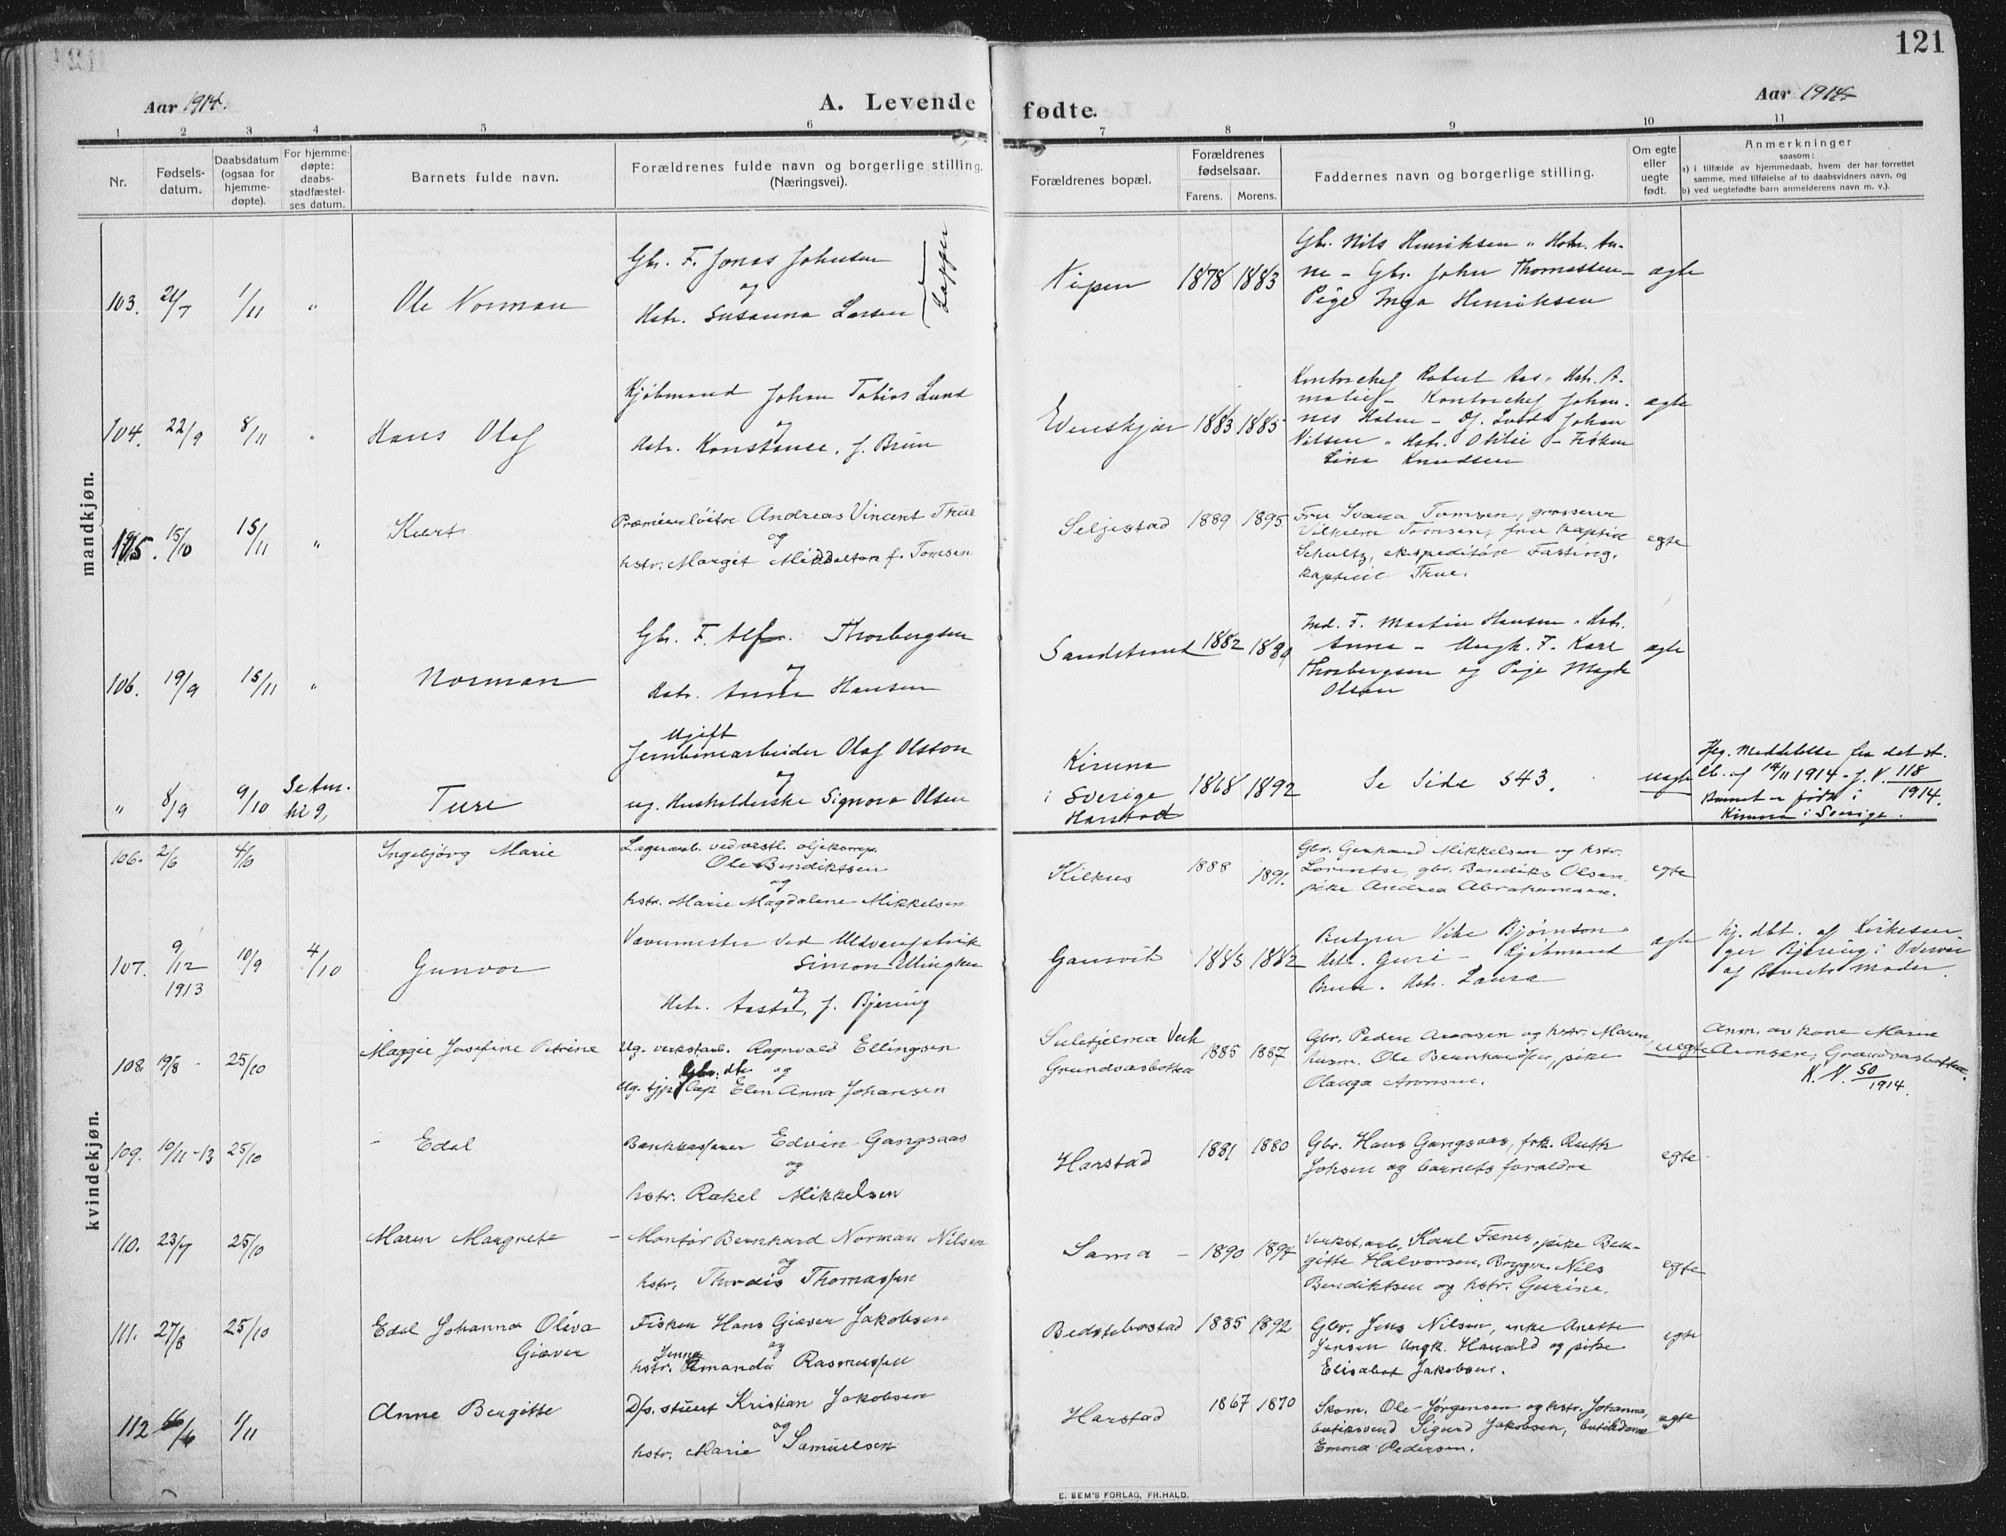 121
Aar 1914.
A. Levende fødte.
Aar 1914.
1 2 3 4 5 6 7 8 9 10 11
Nr.
Fødsels-
datum.
Daabsdatum
(ogsaa for
hjemme-
døpte).
For hjemme-
døpte:
daabs-
stadfæstel-
ses datum.
Barnets fulde navn.
Forældrenes fulde navn og borgerlige stilling.
(Næringsvei).
Forældrenes bopæl.
Forældrenes
fødselsaar.
Farens. Morens.
Faddernes navn og borgerlige stilling.
Om egte
eller
uegte
født.
Anmerkninger
saasom:
a) i tilfælde av hjemmedaab, hvem der har forrettet
samme, med tilføielse af to daabsvidners navn, og
b) ved uegtefødte barn anmelderens navn m. v.).
mandkjøn.
Gbr. F. Jonas Johnsen
og
Hstr. Susanna Larsen
103. 21/7 1/11 " Ole Norman
Nipen 1878 1883
Gbr. Nils Henriksen " Hstr. An-
ne - Gbr. John Thomassen -
Pige Inga Henriksen
ægte
104. 22/9 8/11 " Hans Olaf
Kjøbmand Johan Tobias Lund
og
Hstr. Konstance, f. Bruun
Evenskjær 1883 1885
Kontorchef Robert Aas " Hstr. A-
malie - Kontorchef Johan-
nes Holm - Johan
Nilsen " Hstr. Otilie - Frøken
Lina Knudsen
ægte
105. 15/10 15/11 " Kurt
Premierløitn. Andreas Vincent Thue
og
hstr. Margit Middelton f. Tomsen
Seljestad 1889 1895
Fru Svava Tomsen, grosserer
Vilhelm Tomsen, fru kaptein
Schultz, ekspeditør Fasting,
kaptein Thue.
egte
106. 19/9 15/11 " Norman
Gbr. F. Alf. Thorbergsen
og
Hstr. Anna Hansen
Sandstrand 1882 1884
Md. F. Martin Hansen " Hstr.
Anna - Ungk. F. Karl
Thorbergsen og Pige Magda
Olsen
ægte
" 8/9 9/10 Se Anm. Ture
Ugift
Jernbanearbeider Olaf Olsson
og
ug. Husholderske Signora Olsen
Kiruna
i Sverige
Harstad
1868 1892
Se Side 543.
uægte
Flg. Meddelelse fra det st.
cb. af 14/11 1914 - J. N. 118/1914.
Barnet er født i
Kiruna i Sverige.
kvindekjøn.
106. 2/6 4/10 Ingebjørg Marie
Lagerarb. ved vestl. oljekomp.
Ole Bendiktsen
og
hstr. Marie Magdalene Mikkelsen
Kilhus 1888 1891.
Gbr. Gerhard Mikkelsen og hstr.
Lorentse, gbr. Bendiks Olsen,
pike Andrea Abrahamsen.
egte
107. 9/12 1913 10/9 4/10 Gunvor
Vævemester ved Uldvarefabrik
Simon Ellingsen
og
Hstr. Aasta, f. Bjering
Gansvik 1885 1882
Bestyrer Vike Bjørnson
Hstr. Guri - Kjøbmand
Bruun. Hstr. Laura
ægte
hj. dbt. af Kirkesan-
ger Bjering i Overvær
af Barnets Moder.
108. 19/8 - 25/10 Maggie Josefine Petrine
Ug. verkstarb. Ragnvald Ellingsen
og
Ug. tjp. Gbr. dtr. Elen Anna Johansen
Sulitjelma Verk
Grundvasbotten
1885 1887
Gbr. Peder Aronsen og hstr. Maren,
husm. Ole Bernhardsen, pike
Olauga Aronsen.
uegte
Anm. av kone Marie
Aronsen, Grundvasbotten.
K. N. 50/1914.
109. 10/11-13 25/10 - Edal
Bankkasserer Edvin Gangsaas
og
hstr. Rakel Mikkelsen
Harstad 1881 1880
Gbr. Hans Gangsaas, frk. Ruth
Johsen og barnets forældre
egte
110. 23/7 25/10 Maren Margrete
- Montør Bernhard Norman Nilsen
og
hstr. Thordis Thomassen
Sama - 1890 1894
Verkst.arb. Karl Fænes, pike Ber-
gitte Halvorsen, Brygger Nils
Bendiktsen og hstr. Gurine.
egte
111. 27/8 25/10 Edel Johanna Oliva
Giæver
Fisker Hans Giæver Jakobsen
og
hstr. Jenna Amanda Rasmussen
Bedstebostad 1885 1892
Gbr. Jens Nilsen, enke Anette
Jensen Ungk. Harald og pike
Elisabet Jakobsen.
egte
112 16/6 1/11 Anne Bergitte
D/s. stuert Kristian Jakobsen
og
hstr. Marie Samuelsen
Harstad 1867 1870
Skom. Ole Jørgensen og hstr. Johanna,
butiksvend Sigurd Jakobsen, butikdame
Emma Pedersen.
egte
E. SEM'S FORLAG, FR.HALD.